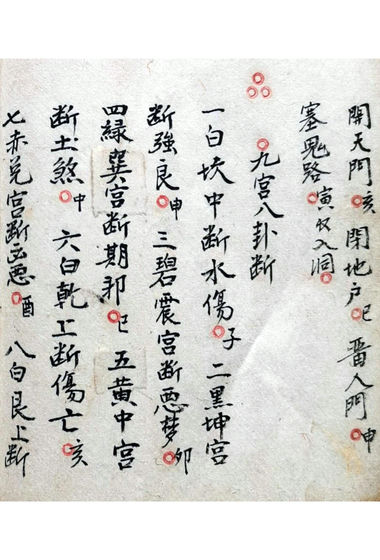 開天門亥 閉地户巳 畨人門申
塞鬼路寅 入洞
九宫八卦断
一白坎中断水傷子 二黑坤宫
断強良申 三碧震宫断恶梦卯
四緑巽宫断期邪巳 五黄中宫
断土煞中 六白乾上断傷亡亥
七赤兑宫断恶酉 八白艮上断